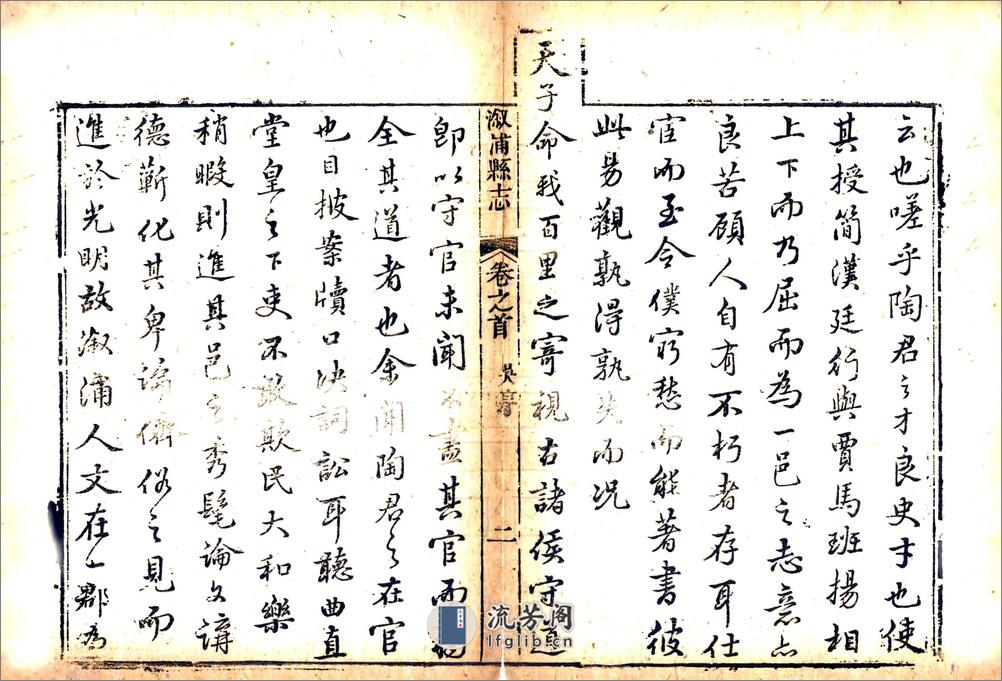 云也嗟乎陶君之才良史才也使
其授簡漢廷行與賈馬班揚相
上下而乃屈而為一邑之志意亦
良苦顧人自有不朽者存耳仕
宦而至令僕窮愁而能著書彼
此易觀孰得孰失而況
天子命我百里之寄視古諸侯守道
溆浦縣志
卷之首
吳
二
卽以守官未聞不盡其官而
全其道者也余聞陶君之在官
也目披案牘口決詞訟耳聽曲直
堂皇之下吏不敢欺民大和樂
稍暇則進其邑之秀髦論文講
德蘄化其卑譾儕俗之見而
進於光明故溆浦人文在一郡為
流芳阁
lfglib.cn